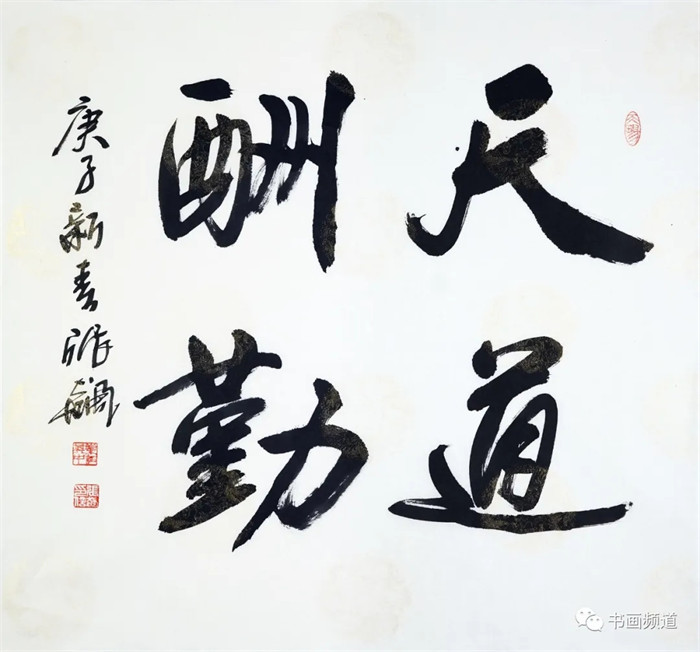 天道
酬勤
庚子新春
书画频道